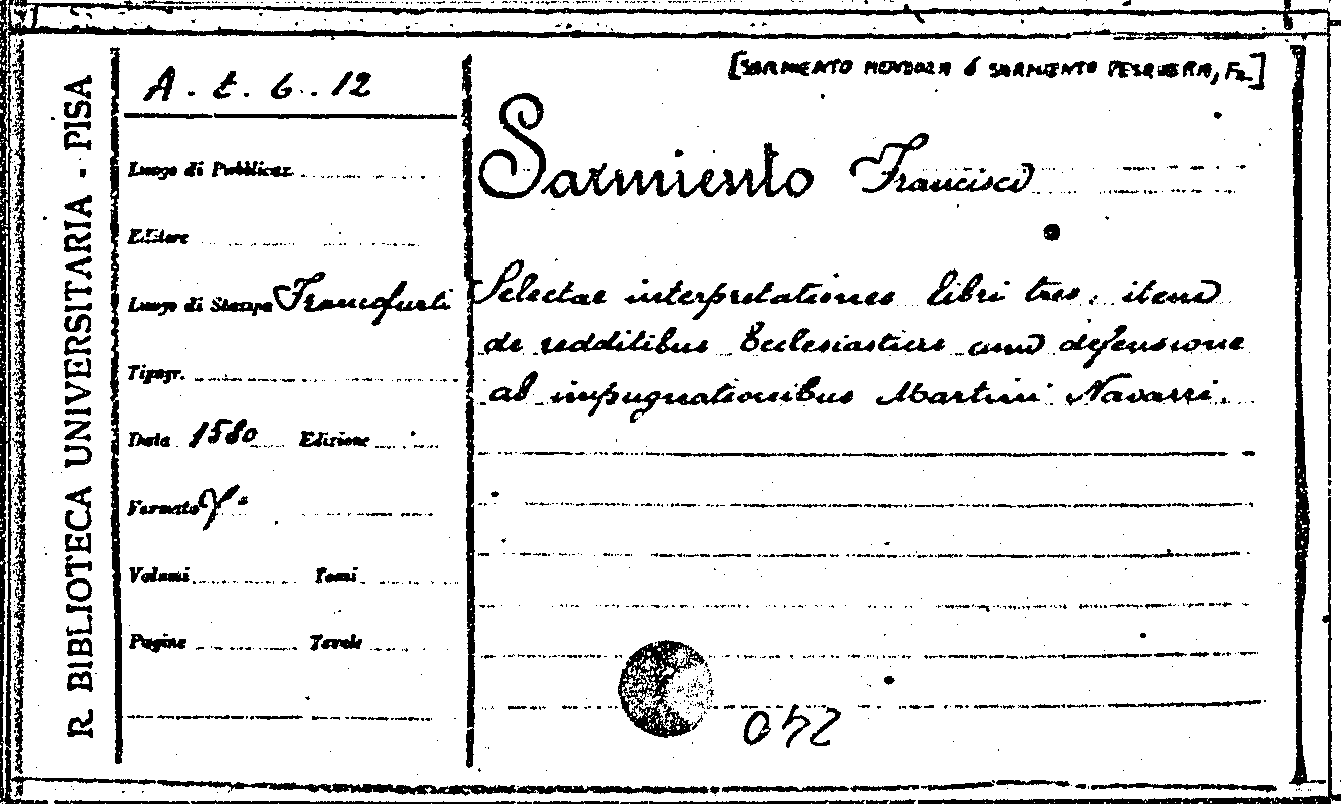 R. BIBLIOTECA UNIVERSITARIA - PISA
A. t. 6. 12
Luogo di Pubblicaz.
Editore
Luogo di Stampa Francofurti
Tipogr.
Data 1580 Edizione
Formato
Volumi Tomi
Pagine Tavole
[SARMIENTO MENDOZA ó SARMIENTO PESQUERA, Fr.]
Sarmiento Francisco
Selectae interpretationes libri tres, item
de redditibus Ecclesiasticis cum defensione
ab impugnationibus Martini Navarri.
042